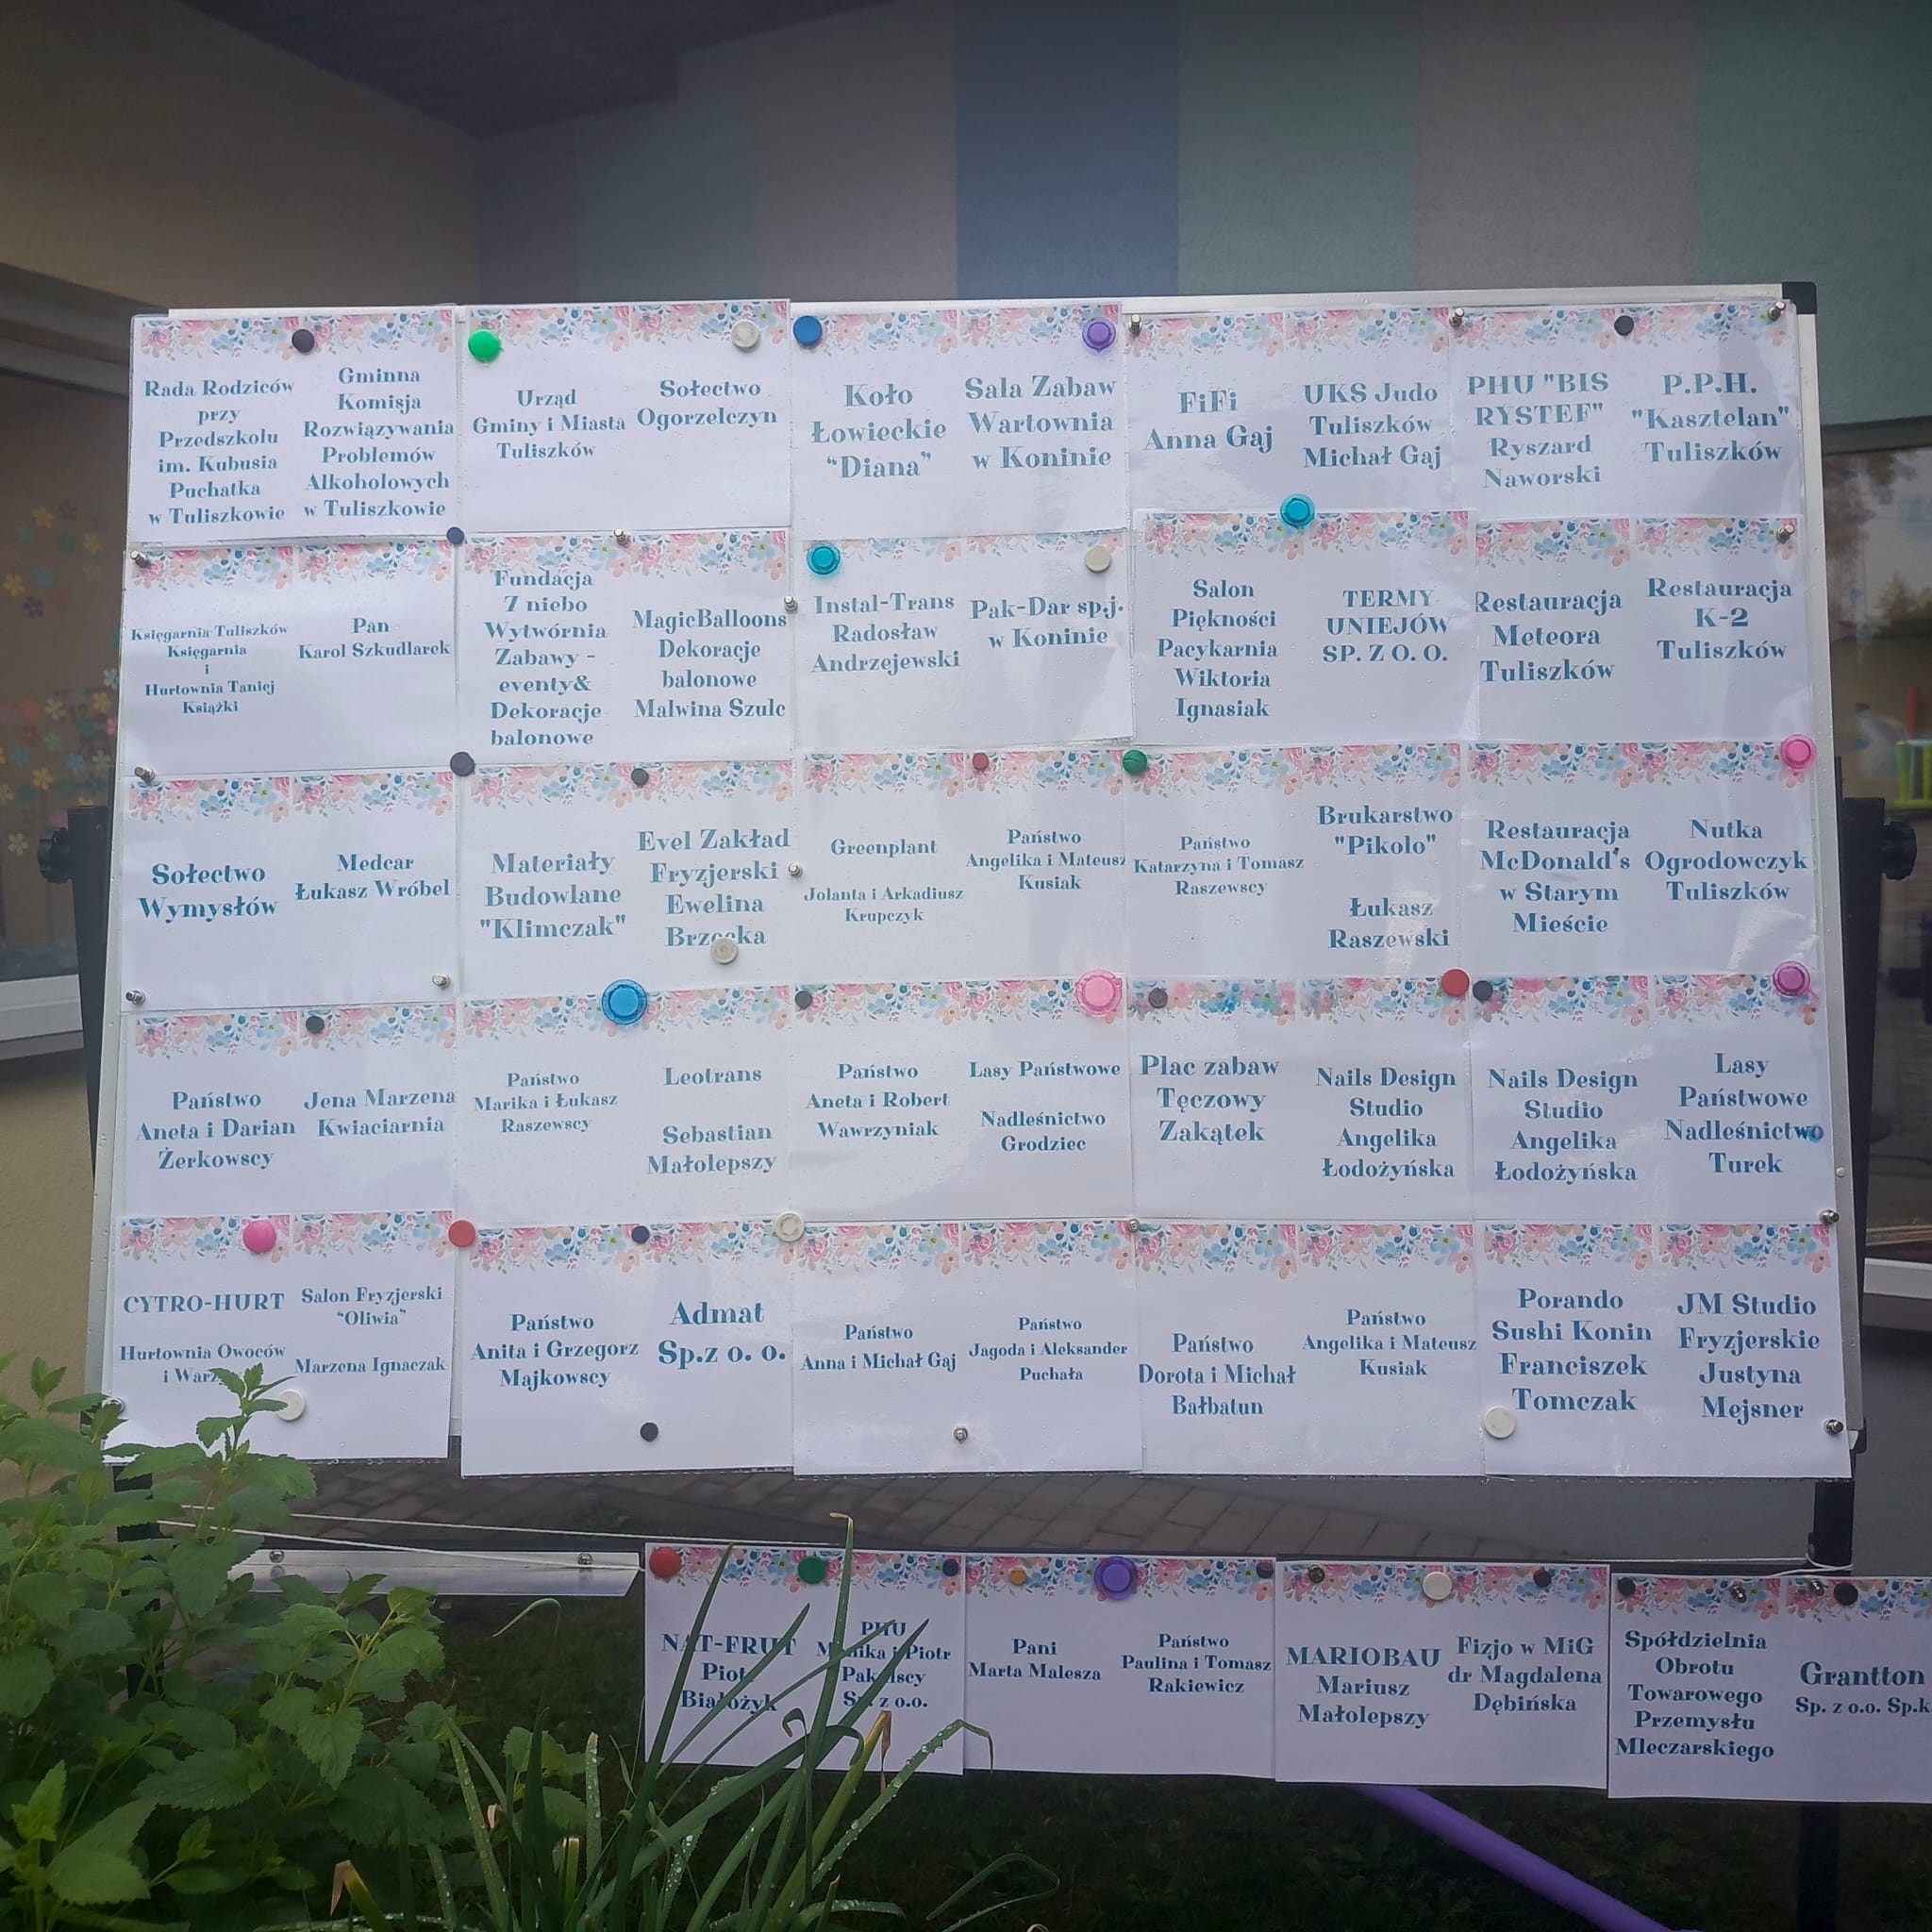 Rada Rodziców
przy
Przedszkolu
im. Kubusia
Puchatka
w Tuliszkowie
Gminna
Komisja
Rozwiązywania
Problemów
Alkoholowych
w Tuliszkowie
Urząd
Gminy i Miasta
Tuliszków
Sołectwo
Ogorzelczyn
Koło
Łowieckie
“Diana”
Sala Zabaw
Wartownia
w Koninie
FiFi
Anna Gaj
UKS Judo
Tuliszków
Michał Gaj
PHU "BIS
RYSTEF"
Ryszard
Naworski
P.P.H.
"Kasztelan"
Tuliszków
Księgarnia Tuliszków
Księgarnia
i
Hurtownia Taniej
Książki
Pan
Karol Szkudlarek
Fundacja
7 niebo
Wytwórnia
Zabawy -
eventy&
Dekoracje
balonowe
MagicBalloons
Dekoracje
balonowe
Malwina Szulc
Instal-Trans
Radosław
Andrzejewski
Pak-Dar sp.j.
w Koninie
Salon
Piękności
Pacykarnia
Wiktoria
Ignasiak
TERMY
UNIEJÓW
SP. Z O. O.
Restauracja
Meteora
Tuliszków
Restauracja
K-2
Tuliszków
Sołectwo
Wymysłów
Medcar
Łukasz Wróbel
Materiały
Budowlane
"Klimczak"
Evel Zakład
Fryzjerski
Ewelina
Greenplant
Jolanta i Arkadiusz
Krupczyk
Państwo
Angelika i Mateusz
Kusiak
Państwo
Katarzyna i Tomasz
Raszewscy
Brukarstwo
"Pikolo"
Łukasz
Raszewski
Restauracja
McDonald's
w Starym
Mieście
Nutka
Ogrodowczyk
Tuliszków
Państwo
Aneta i Darian
Żerkowscy
Jena Marzena
Kwiaciarnia
Państwo
Marika i Łukasz
Raszewscy
Leotrans
Sebastian
Małolepszy
Państwo
Aneta i Robert
Wawrzyniak
Lasy Państwowe
Nadleśnictwo
Grodziec
Plac zabaw
Tęczowy
Zakątek
Nails Design
Studio
Angelika
Łodożyńska
Nails Design
Studio
Angelika
Łodożyńska
Lasy
Państwowe
Nadleśnictwo
Turek
CYTRO-HURT
Hurtownia Owoców
i
Salon Fryzjerski
“Oliwia”
Marzena Ignaczak
Państwo
Anita i Grzegorz
Majkowscy
Admat
Sp.z o. o.
Państwo
Anna i Michał Gaj
Państwo
Jagoda i Aleksander
Puchała
Państwo
Dorota i Michał
Bałbatun
Państwo
Angelika i Mateusz
Kusiak
Porando
Sushi Konin
Franciszek
Tomczak
JM Studio
Fryzjerskie
Justyna
Mejsner
NAT-FRUT
Piotr
PHU
i Piotr
Sp. z o.o.
Pani
Marta Malesza
Państwo
Paulina i Tomasz
Rakiewicz
MARIOBAU
Mariusz
Małolepszy
Fizjo w MiG
dr Magdalena
Dębińska
Spółdzielnia
Obrotu
Towarowego
Przemysłu
Mleczarskiego
Grantton
Sp. z o.o. Sp.k